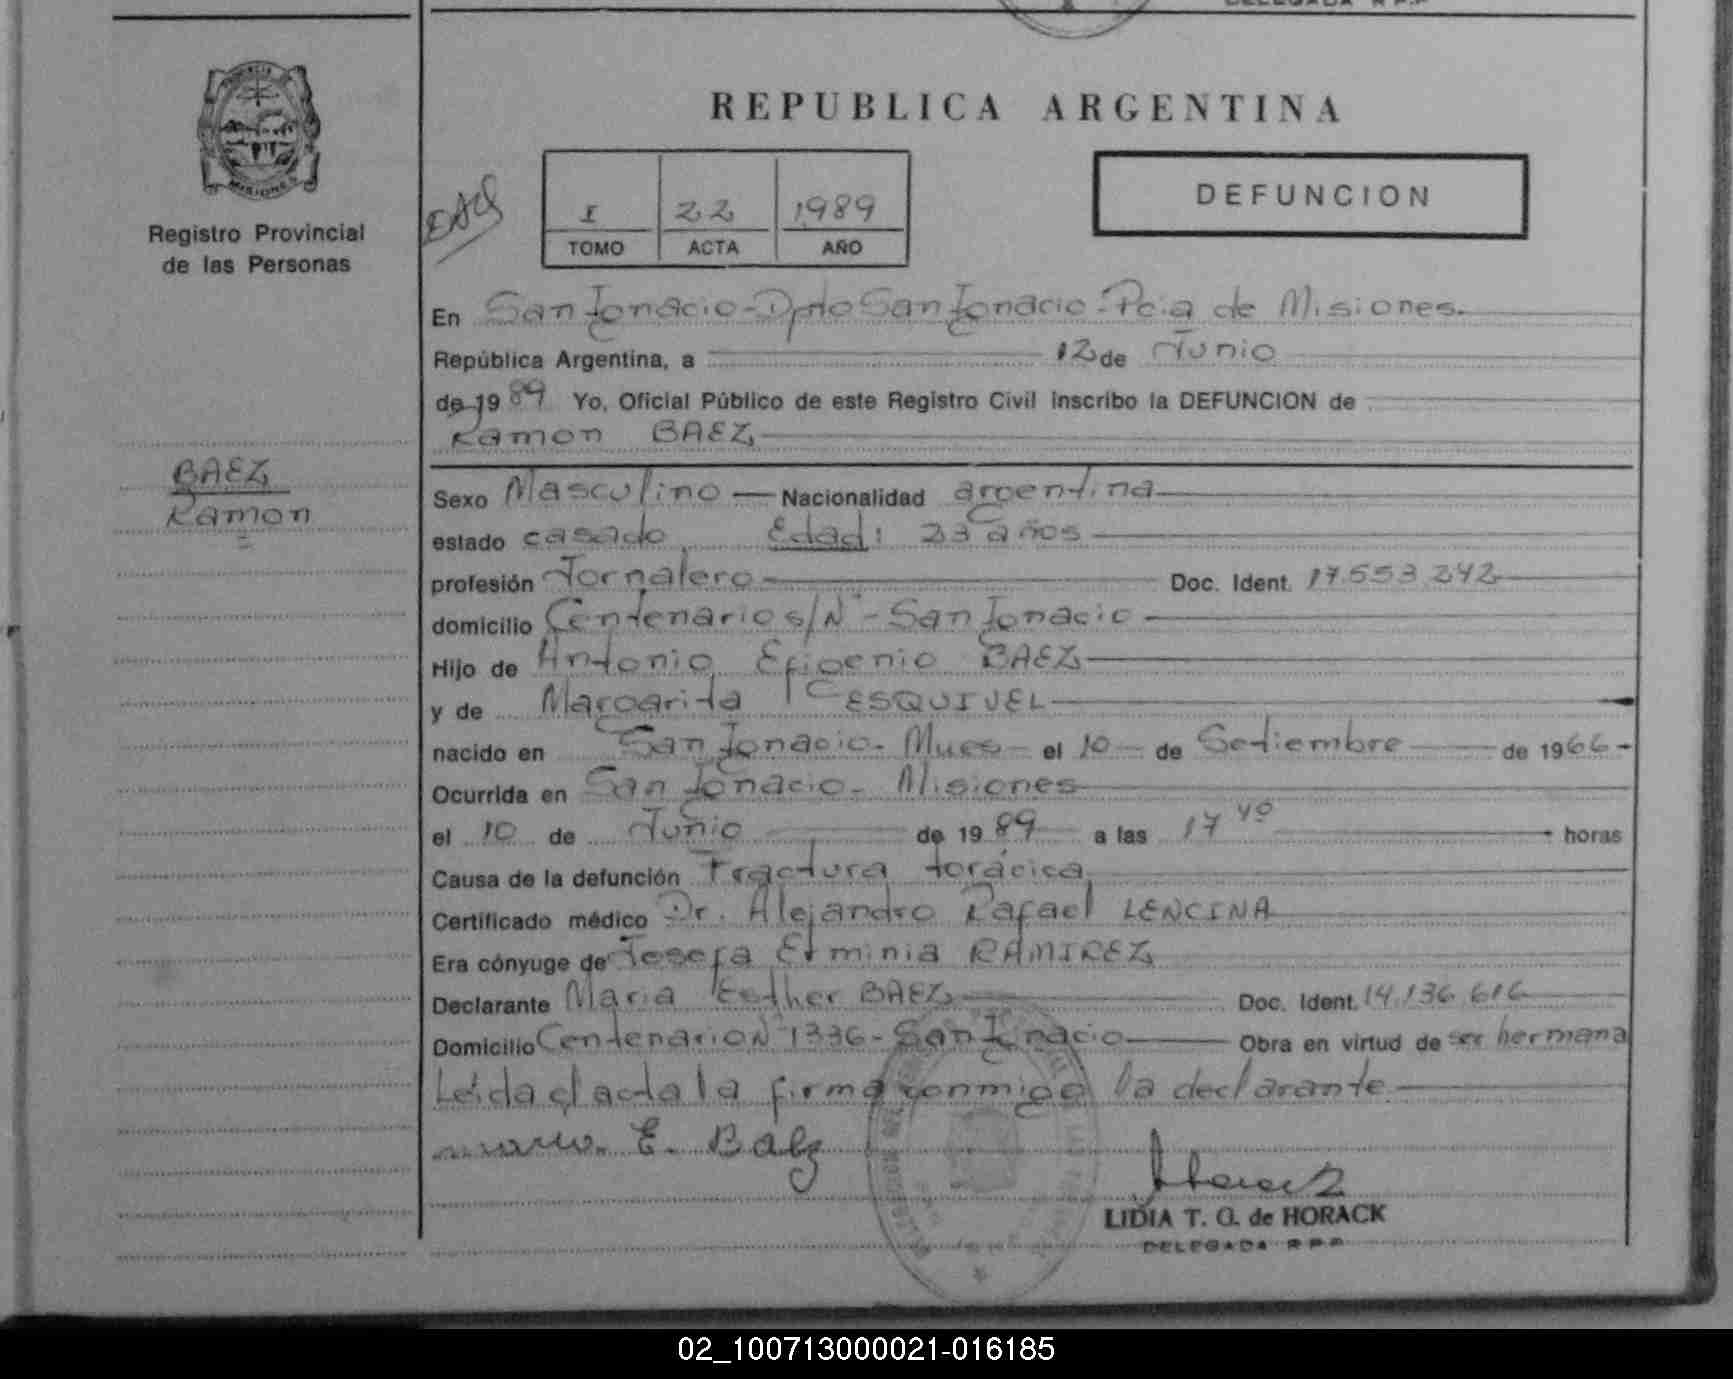 REPUBLICA ARGENTINA
PROVINCIA DE
MISIONES
Registro Provincial
de las Personas
I 22 1989
TOMO ACTA AÑO
DEFUNCION
En San Ignacio-Dpto San Ignacio-Pcia de Misiones.
República Argentina, a 12 de Junio
de 1989 Yo, Oficial Público de este Registro Civil inscribo la DEFUNCION de
Ramon BAEZ
BAEZ
Ramon
Sexo Masculino — Nacionalidad argentina
estado casado Edad: 23 años
profesión Jornalero Doc. Ident. 17.553.242
domicilio Centenario s/N° - San Ignacio
Hijo de Antonio Efigenio BAEZ
y de Margarita ESQUIVEL
nacido en San Ignacio - Mnes — el 10 — de Setiembre — de 1966-
Ocurrida en San Ignacio - Misiones
el 10 de Junio de 1989 a las 17 40 horas
Causa de la defunción Fractura torácica
Certificado médico Dr. Alejandro Rafael LENCINA
Era cónyuge de Josefa Erminia RAMIREZ
Declarante Maria Esther BAEZ Doc. Ident. 14.136.616
Domicilio Centenario N° 1336 - San Ignacio Obra en virtud de ser hermana
Leída el acta la firma conmigo la declarante
E. Baez
LIDIA T. G. de HORACK
DELEGADA R.P.P.
02_100713000021-016185